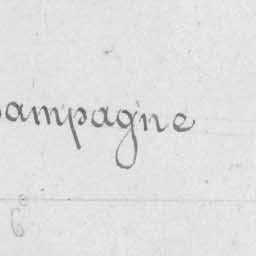 ampagne
6e